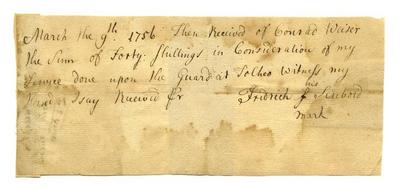 March the 9th 1756. Then Received of Conrad Weiser
the Sum of Forty Shillings in Consideration of my
Service done upon the Guard at Witness my
Hand I say Received Pr
his
Fridrich
mark